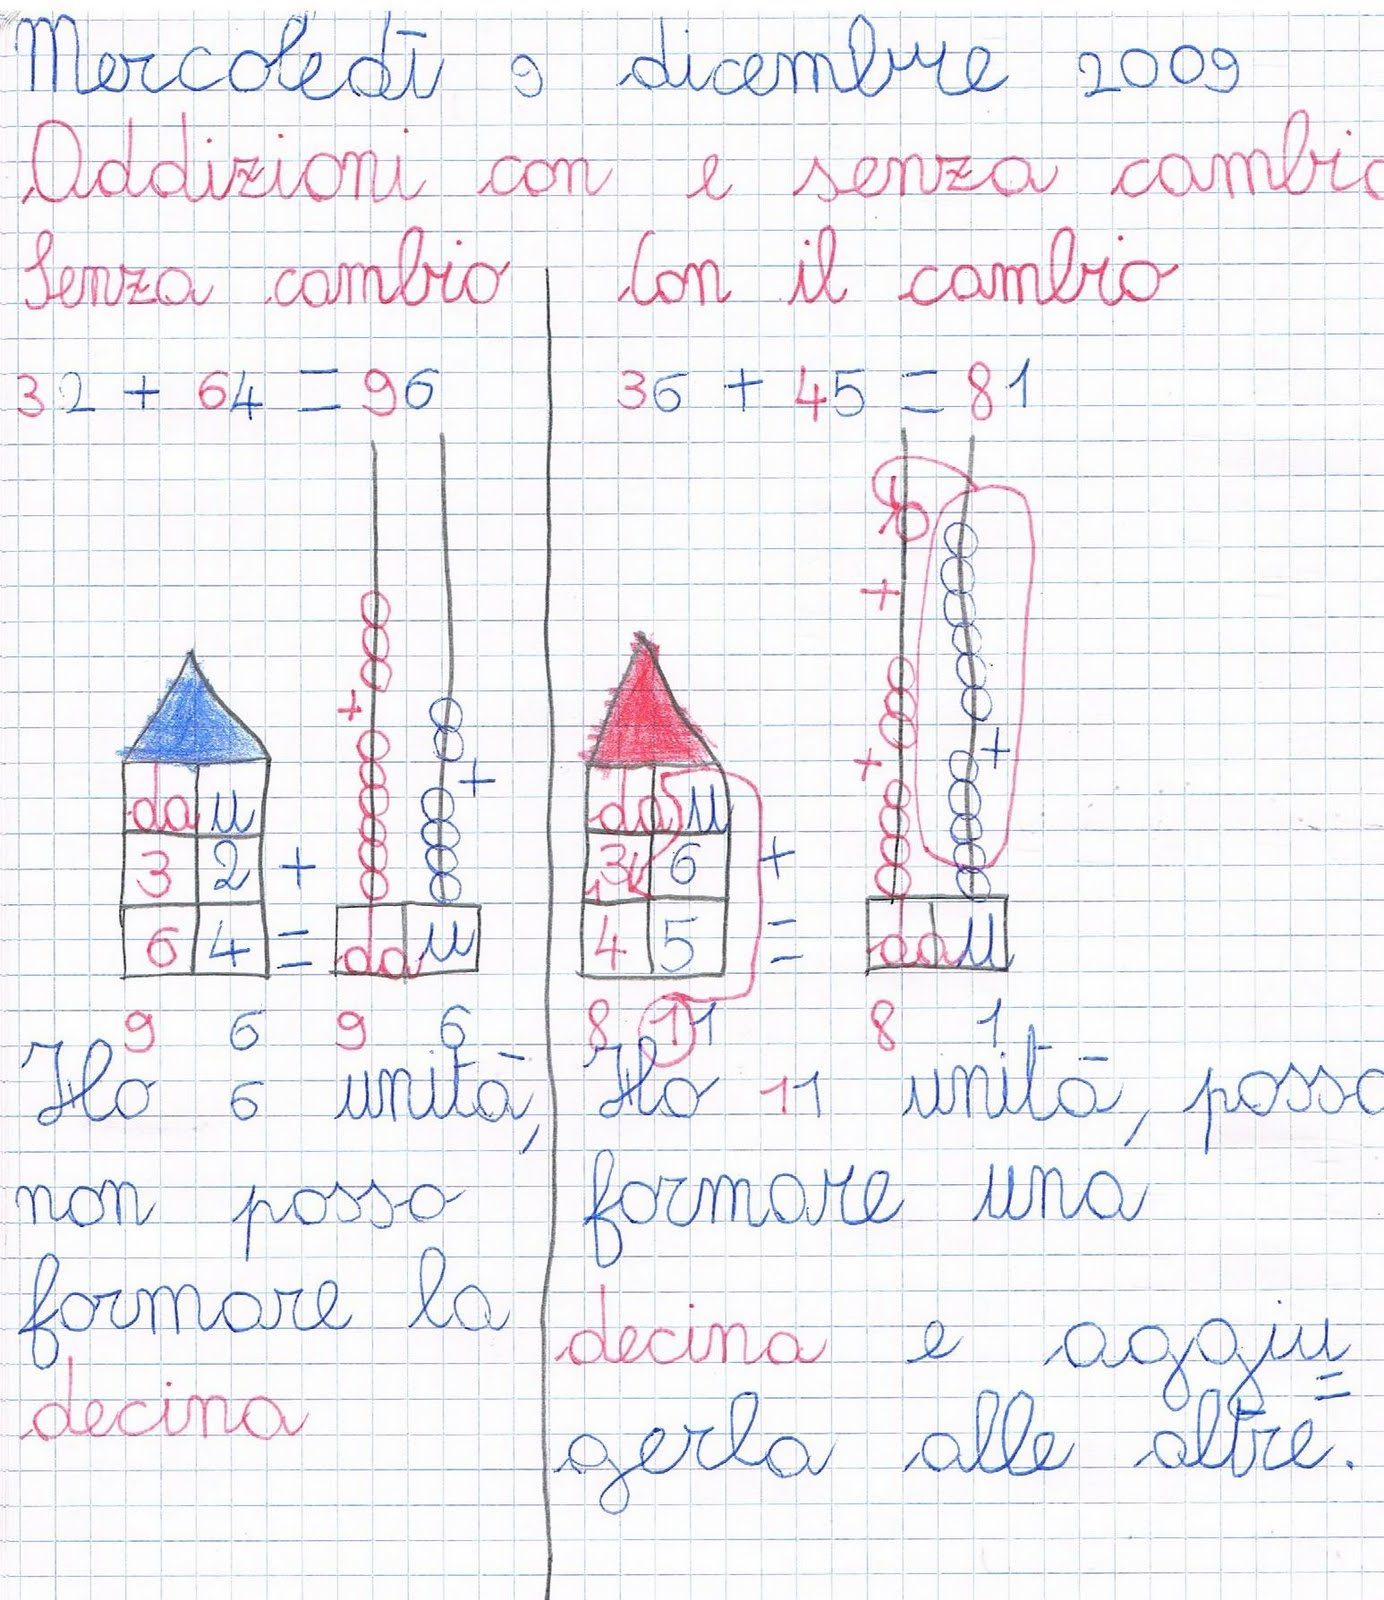 Mercoledì 9 dicembre 2009
Addizioni con e senza cambio
Senza cambio
32 + 64 = 96
da u
3 2 +
6 4 =
9 6
+
+
da u
9 6
Ho 6 unità,
non posso
formare la
decina
Con il cambio
36 + 45 = 81
da u
3 6 +
1
4 5 =
8 11
+
+
+
da u
8 1
Ho 11 unità, posso
formare una
decina e aggiu=
gerla alle altre.